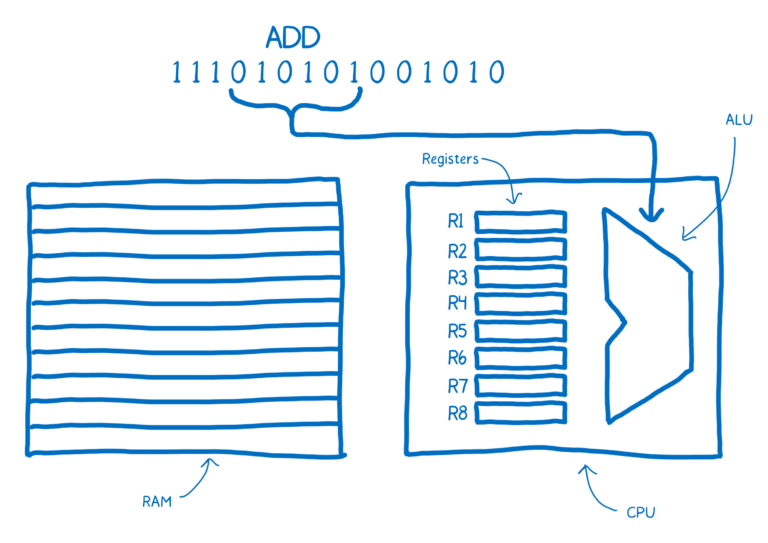 ADD
111010101001010
ALU
Registers
R1
R2
R3
R4
R5
R6
R7
R8
RAM
CPU